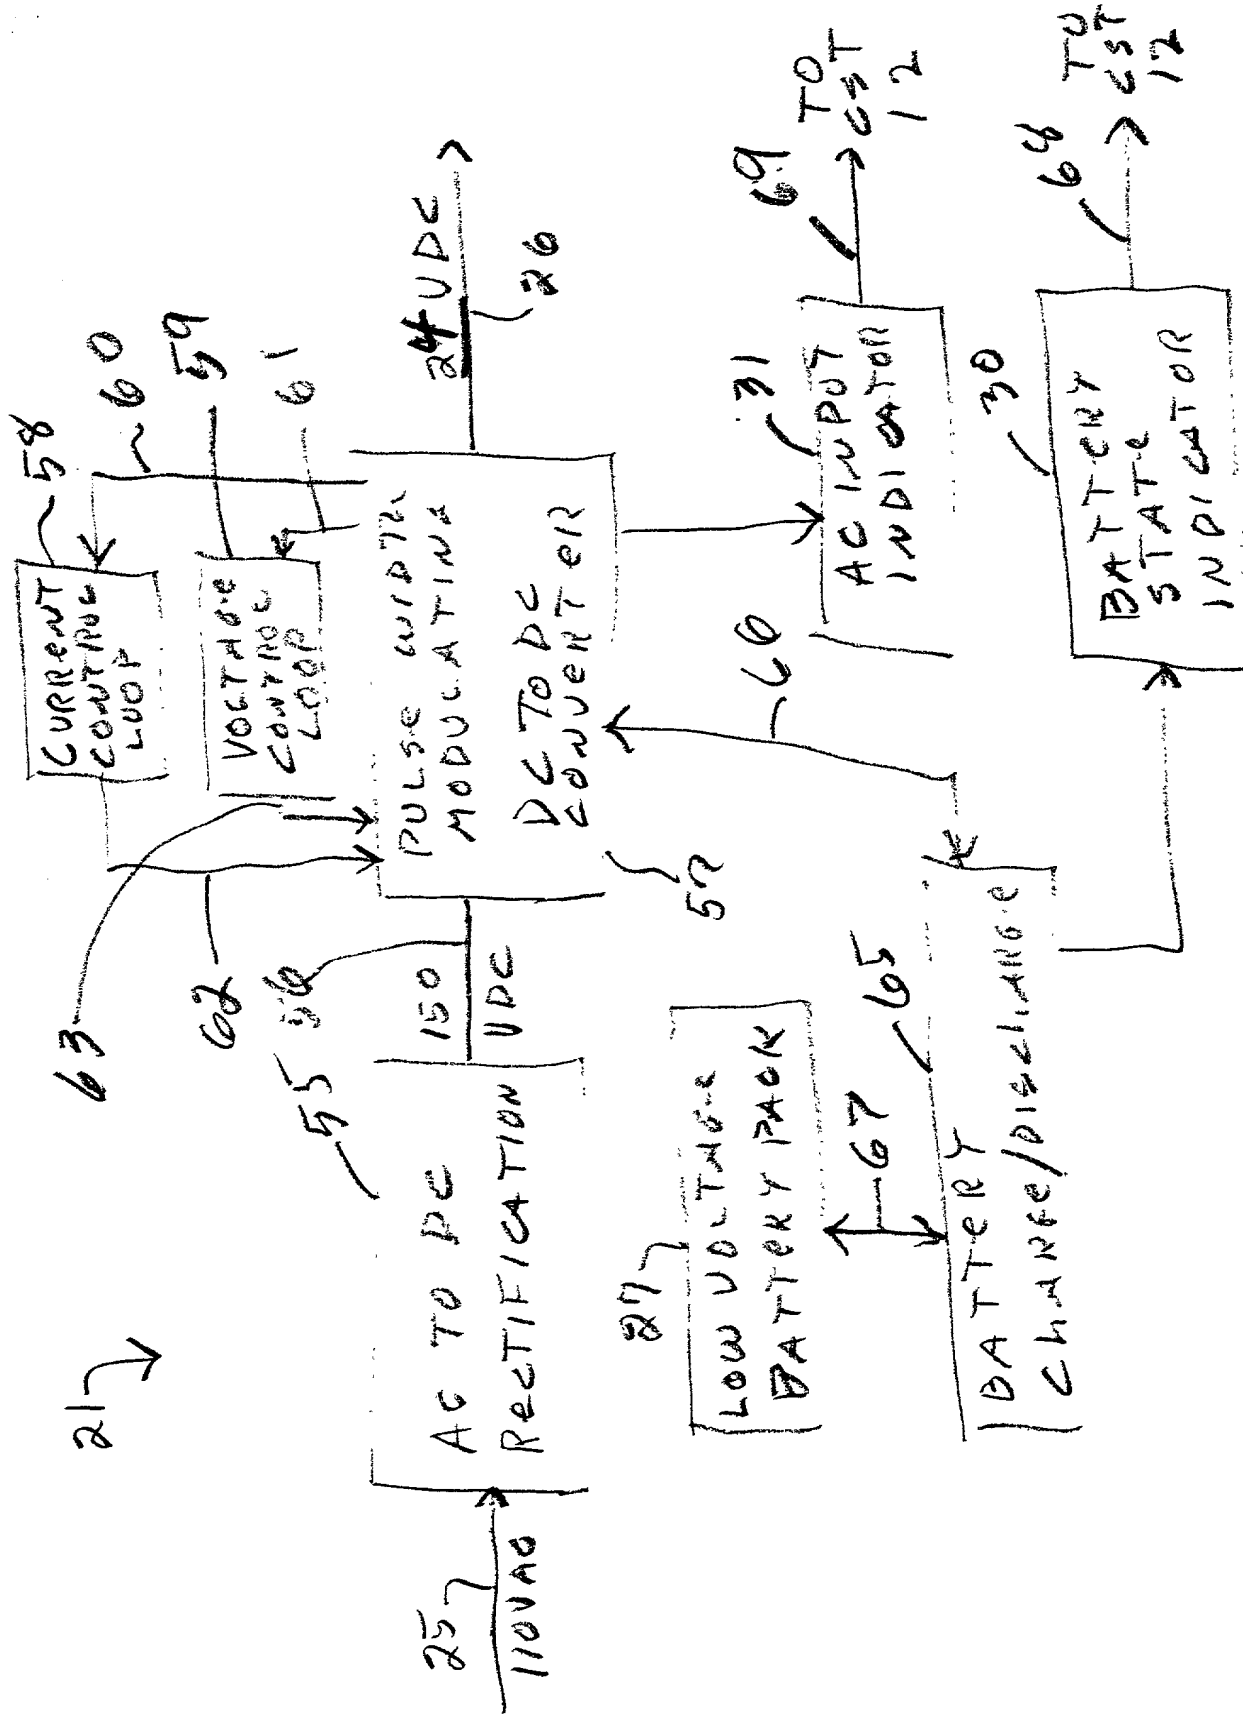 21
25
110VAC
AC TO DC
RECTIFICATION
55
56
150
VDC
63
62
CURRENT
CONTROL
LOOP
58
60
VOLTAGE
CONTROL
LOOP
59
61
PULSE WIDTH
MODULATING
DC TO DC
CONVERTER
57
24 VDC
26
27
LOW VOLTAGE
BATTERY PACK
67
65
BATTERY
CHARGE/DISCHARGE
66
31
AC INPUT
INDICATOR
69
TO
CST
12
30
BATTERY
STATE
INDICATOR
68
TO
CST
12